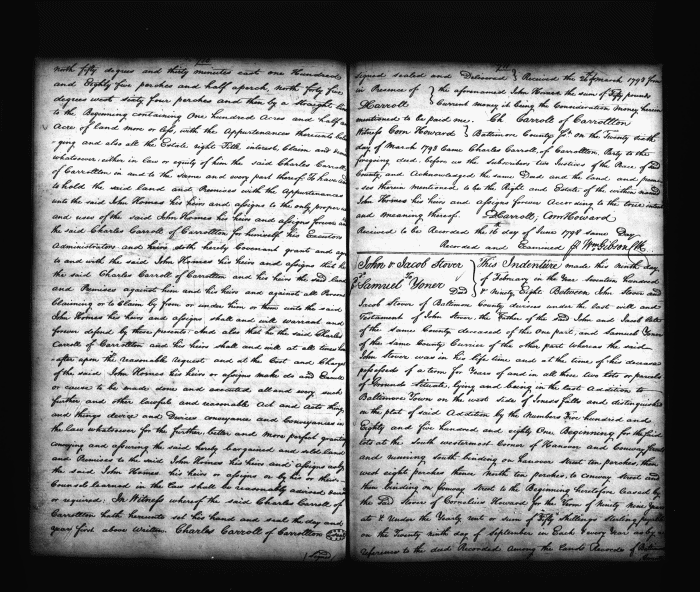 north fifty degrees and thirty minutes east one Hundred
and Eighty five perches and half a perch, north forty five
degrees west sixty four perches and then by a straight line
to the Beginning containing One hundred Acres and half an
Acre of land more or less, with the Appurtenances thereunto belon
ging and also all the Estate right Title interest Claim and
whatsoever either in law or equity of him the said Charles Carroll
of Carrollton in and to the same and every part thereof. To have and
to hold the said land and Premises with the Appurtenances
unto the said John Homes his heirs and assigns to the only proper
and uses of the said John Homes his heirs and assigns forever and
the said Charles Carroll of Carrollton for himself his Executors
Administrators and heirs doth hereby Covenant grant and
to and with the said John Homes his heirs and assigns that he
the said Charles Carroll of Carrollton and his heirs the said land
and Premises against him and his heirs and against all Persons
Claiming or to Claim by from or under him or them unto the said
John Homes his heirs and assigns shall and will warrant and
forever defend by these presents: And also that he the said Charles
Carroll of Carrollton and his heirs shall and will at all times
after upon the reasonable request and at the Cost and Charge
of the said John Homes his heirs or assigns make do and Execute
or cause to be made done and executed all and every such
further and other lawful and reasonable Act and Acts thing
and things device and Devices conveyance and Conveyances in
the law whatsoever for the further, better and more perfect granting
conveying and assuring the said hereby bargained and sold land
and Premises to the said John Homes his heirs and assigns as by
the said John Homes his heirs or assigns or by his or their
Counsel learned in the law shall be reasonably advised
or required: In Witness whereof the said Charles Carroll of
Carrollton hath hereunto set his hand and seal the day and
year first above Written. Charles Carroll of Carrollton
signed sealed and Delivered } Received the March 1798 from
in Presence of } the aforenamed John Homes the sum of fifty pounds
Current money it being the Consideration money herein
mentioned to be paid me. Ch Carroll of Carrollton
Witness Corn Howard } Baltimore County Ss on the Twenty
day of March 1798 Came Charles Carroll of Carrollton Party to the
foregoing deed before us the Subscribers two Justices of the Peace of
County and Acknowledged the same Deed and the land and premi
ses therein mentioned to be the Right and Estate of the within named
John Homes his heirs and assigns forever According to the true intent
and meaning thereof. Corn Howard
Received to be Recorded the 16th day of June 1798 same Day
Recorded and Examined Wm Gibson Clk
John & Jacob Stover
To
Samuel Yoner
Deed
This Indenture made this ninth day
of February in the Year Seventeen hundred
& Ninety Eight Between John Stover and
Jacob Stover of Baltimore County devisees under the last will and
Testament of John Stover the Father of the said John and Jacob late
of the same County deceased of the one part, and Samuel Yoner
of the same County Currier of the other part whereas the said
John Stover was in his life time and at the time of his decease
possessed of a term for Years of and in all those two lots or parcels
of Grounds situate, lying and being in the last Addition to
Baltimore Town on the west side of Jones's falls and distinguished
on the plat of said Addition by the Numbers Five hundred and
Eighty and five hundred and eighty One. Beginning for the said
lots at the South westernmost Corner of Hanover and Conway Streets
and running South binding on Hanover Street ten perches, then
west eight perches thence North ten perches, to Conway street and
then binding on Conway street to the Beginning heretofore leased by
the said Stover of Cornelius Howard for the Term of Ninety nine Years
at & Under the Yearly rent or sum of Fifty Shillings Sterling payable
on the Twenty ninth day of September in Each & every Year as by
reference to the deed Recorded Among the Lands Records of Baltimore